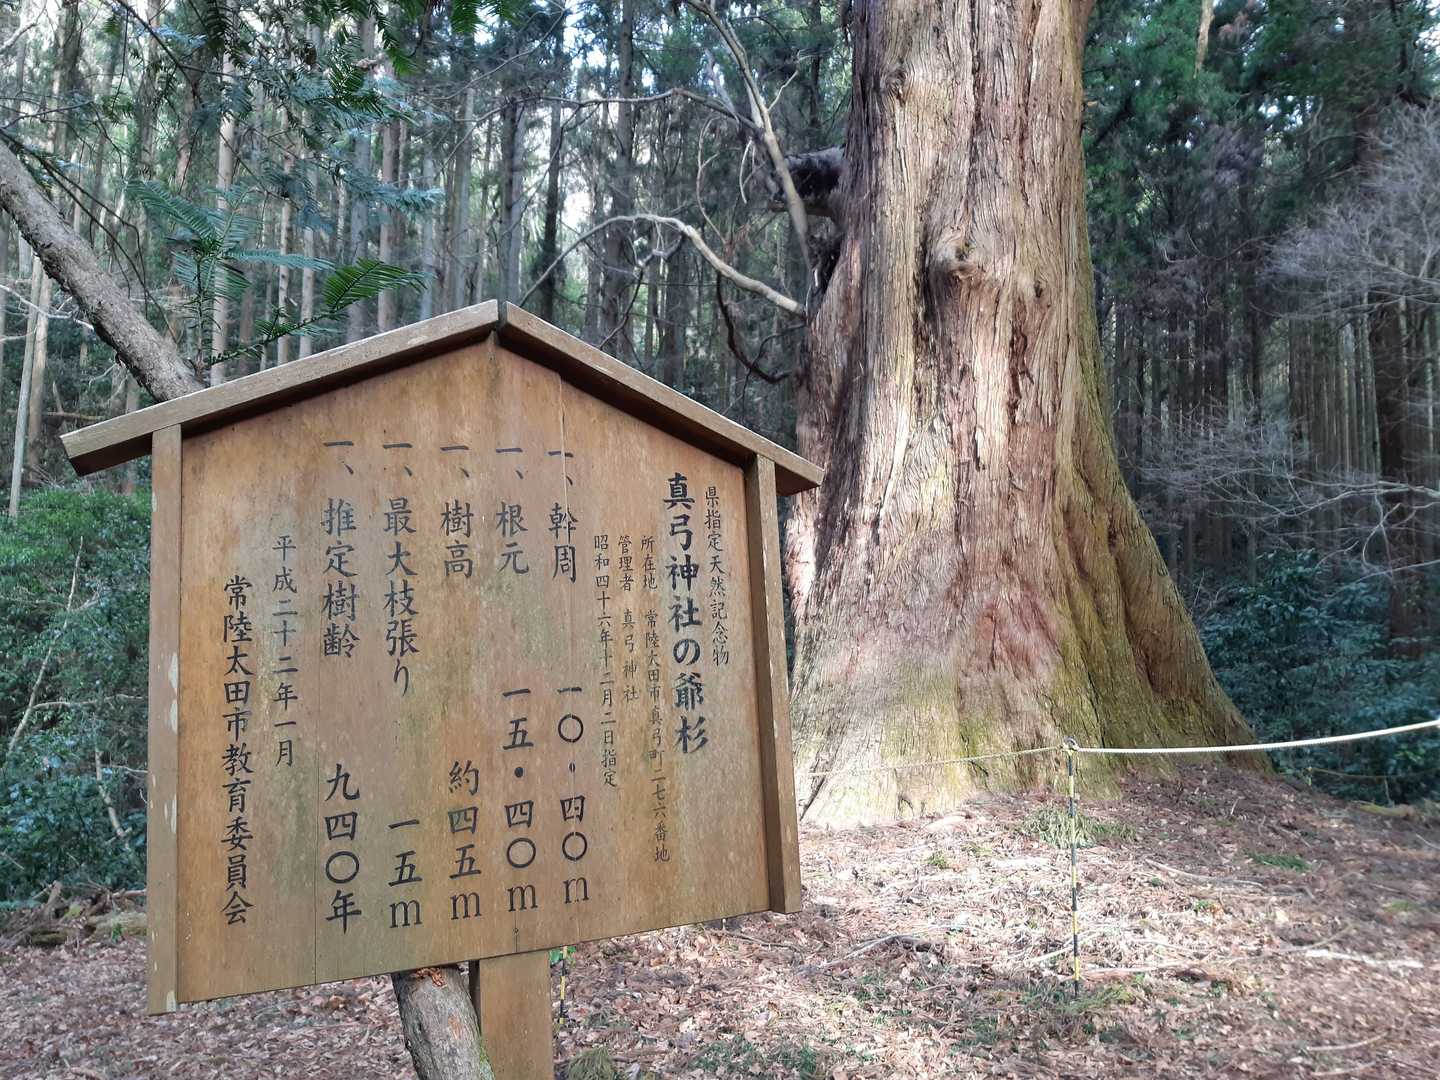 県指定天然記念物
真弓神社の爺杉
所在地 常陸太田市真弓町二七六番地
管理者 真弓神社
昭和四十六年十二月二日指定
一、幹周 一〇・四〇m
一、根元 一五・四〇m
一、樹高 約四五m
一、最大枝張り 一五m
一、推定樹齢 九四〇年
平成二十二年一月
常陸太田市教育委員会